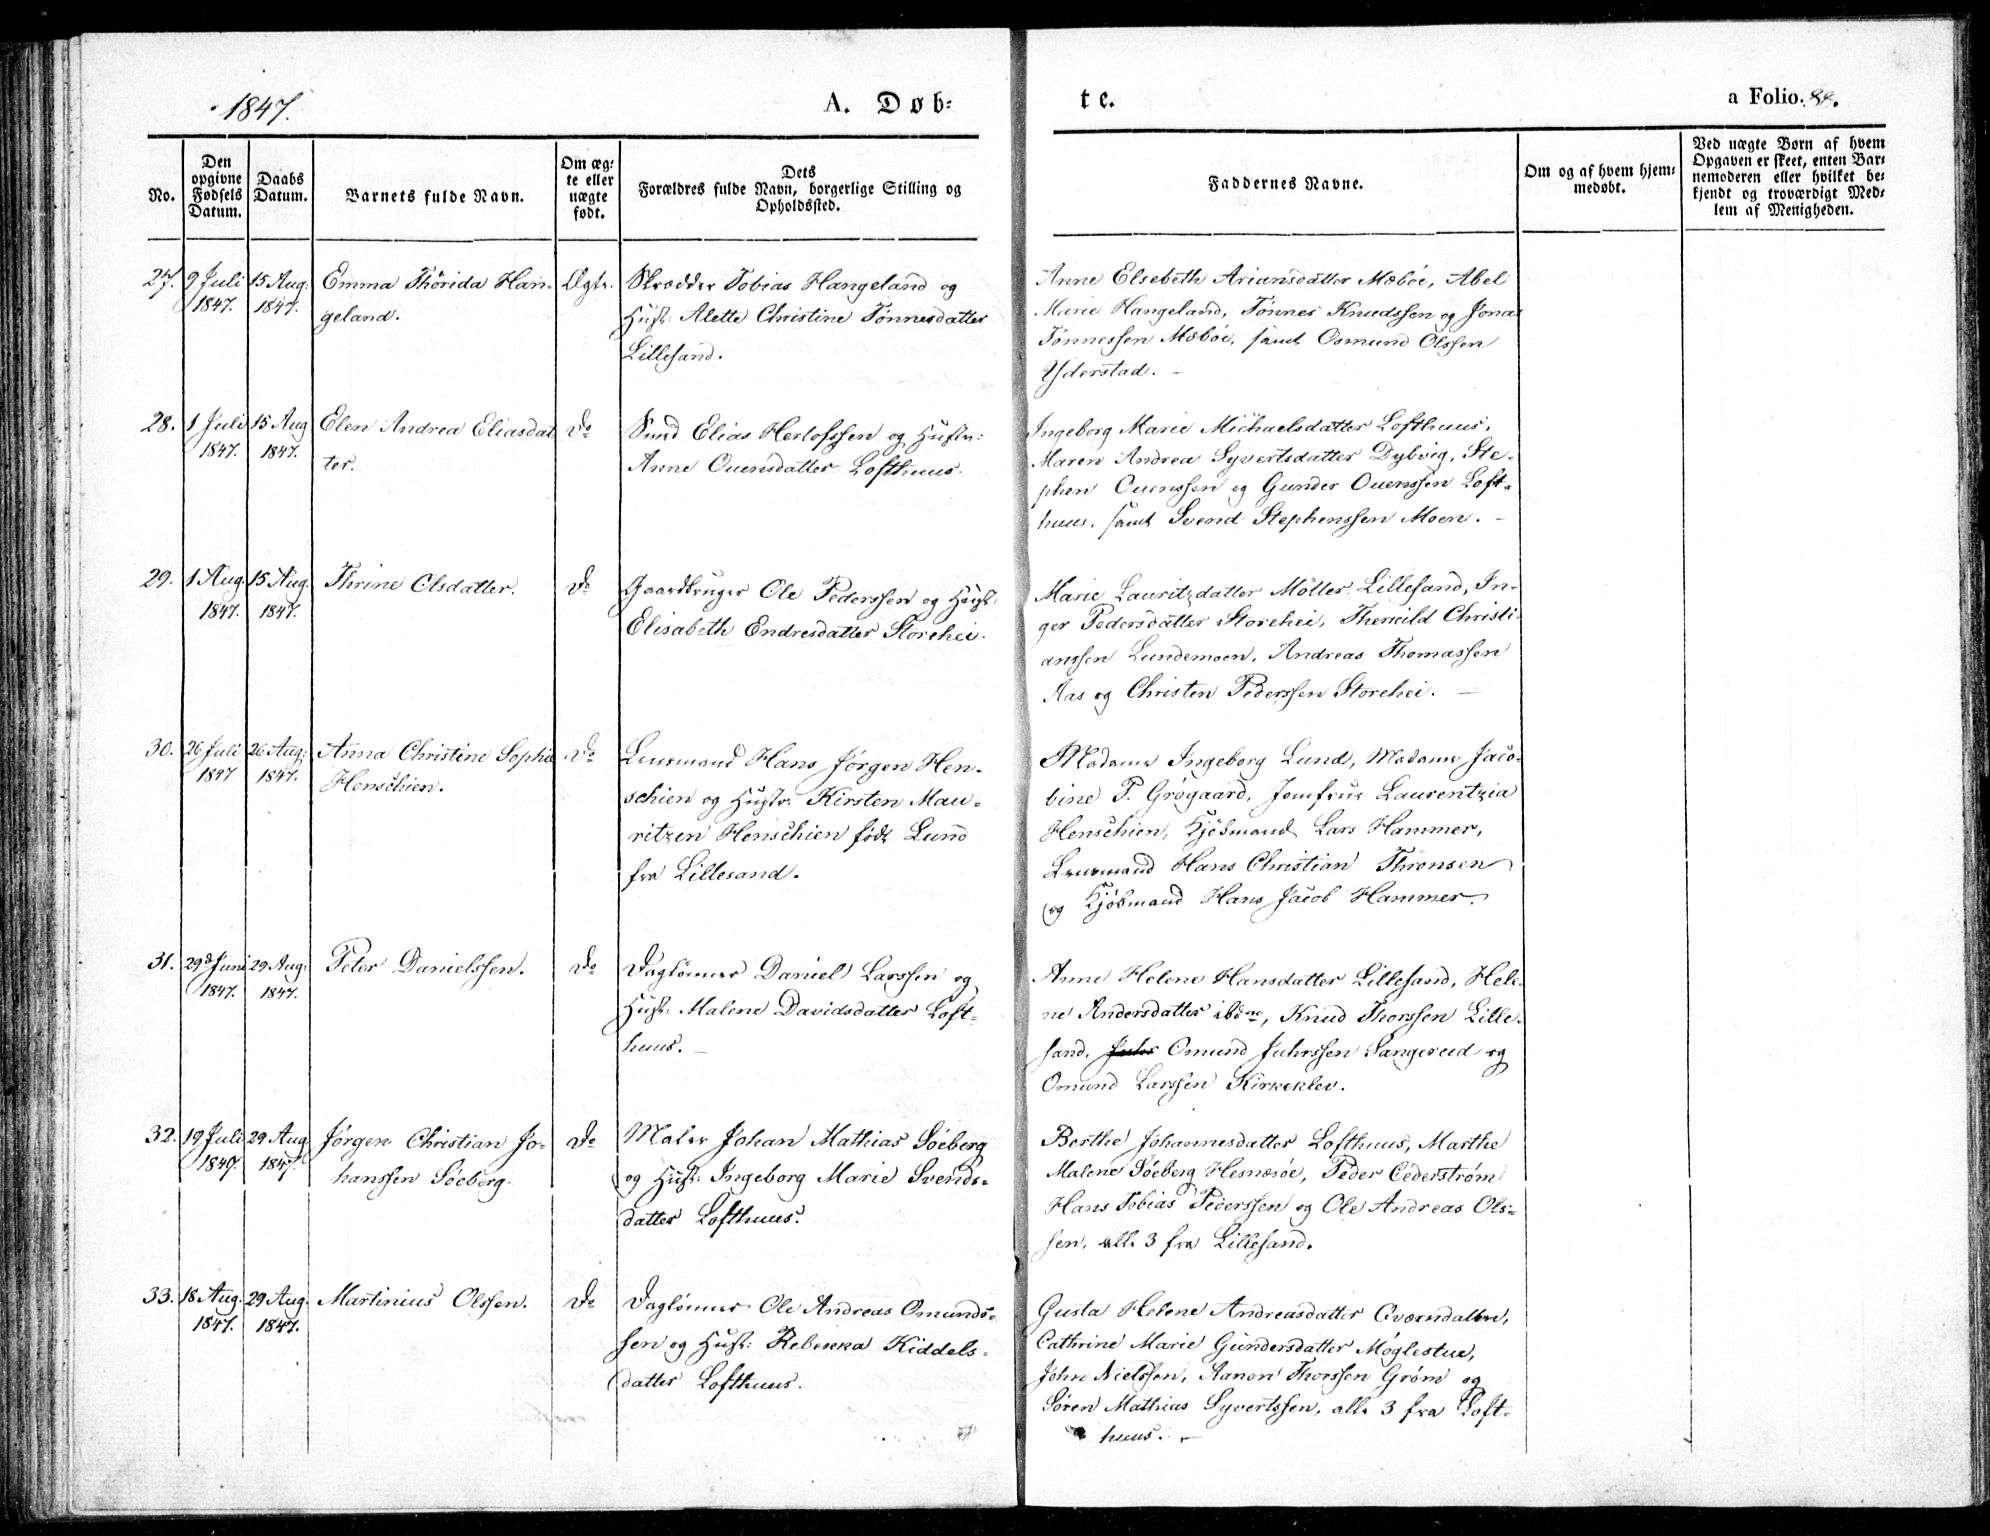 1847.
A. Døb-
te.
a Folio.
No.
Den
opgivne
Fødsels
Datum.
Daabs
Datum.
Barnets fulde Navn.
Om æg-
te eller
uægte
født.
Dets
Forældres fulde Navn, borgerlige Stilling og
Opholdssted.
Faddernes Navne.
Om og af hvem hjem-
medøbt.
Ved uægte Børn af hvem
Opgaven er skeet, enten Bar-
nemoderen eller hvilket be-
kjendt og troværdigt Med-
lem af Menigheden.
27.
9 Juli
1847.
15 Aug.
1847.
Emma Thörida Han-
geland.
Ægte.
Skrædder Tobias Hangeland og
Hust: Alette Christine Tønnesdatter
Lillesand.
Anne Elsebeth Ariansdatter Mæbøe, Abel
Marie Hangeland, Tønnes Knudssen og Jonas
Tønnessen Mæbøe, samt Osmund Olssen
Yderstad. -
28.
1 Juli
1847.
15 Aug
1847.
Elen Andrea Eliasdat
ter.
Do
Smed Elias Herlofssen og Hustr:
Anne Ouensdatter Lofthuus.
Ingeborg Marie Michaelsdatter Lofthuus,
Maren Andrea Syvertsdatter Dybvig, Ste-
phen Ouenssen og Gunder Ouenssen Loft-
huus, samt Svend Stephenssen Moen. -
29.
1 Aug.
1847.
15 Aug.
1847.
Thrine Olsdatter.
Do
Gaardbruger Ole Pederssen og Hust:
Elisabeth Endresdatter Storehei.
Marie Lauritzdatter Möller Lillesand, In-
ger Pedersdatter Storehei, Thericild Christi-
anssen Lundemoen, Andreas Thomassen
Aas og Christen Pederssen Storehei. -
30.
26 Juli
1847
26 Aug:
1847.
Anna Christine Sophie
Henschien.
Do
Lensmand Hans Jørgen Hen-
schien og Hustr: Kirsten Mau-
ritzen Henschien født Lund
fra Lillesand.
Madame Ingeborg Lund, Madame Jaco-
bine P. Grøgaard, Jomfrue Laurentzia
Henschien, Kjøbmand Lars Hammer,
Lensmand Hans Christian Thronsen
og Kjøbmand Hans Jacob Hammer.
31.
29d Juni
1847.
29 Aug:
1847.
Peter Danielssen.
Do
Daglönner Daniel Larssen og
Hust: Malene Davidsdatter Loft-
huus. -
Anne Helene Hansdatter Lillesand, Hele-
ne Andersdatter ibdne, Knud Thorssen Lille-
sand, Omund Juhrssen Sangereid og
Omund Larssen Kirkeklev.
32.
19 Juli
1847.
29 Aug
1847.
Jørgen Christian Jo-
hanssen Söeberg.
Do
Maler Johan Mathias Söeberg
og Hust: Ingeborg Marie Svends-
datter Lofthuus.
Berthe Johannesdatter Lofthuus, Marthe
Malene Söeberg Hesnæsöe, Peder Cederstrøm
Hans Tobias Pederssen og Ole Andreas Ols-
sen, alle 3 fra Lillesand.
33.
18 Aug:
1847.
29 Aug.
1847.
Martinius Olssen.
Do
Daglönner Ole Andreas Omunds-
sen og Hust: Rebekka Kiddels-
datter Lofthuus.
Gusta Helene Andreasdatter Qværndalen,
Cathrine Marie Gundersdatter Møglestue,
John Nielssen, Aanon Thorssen Grøm og
Søren Mathias Syvertssen, alle 3 fra Loft-
huus. -